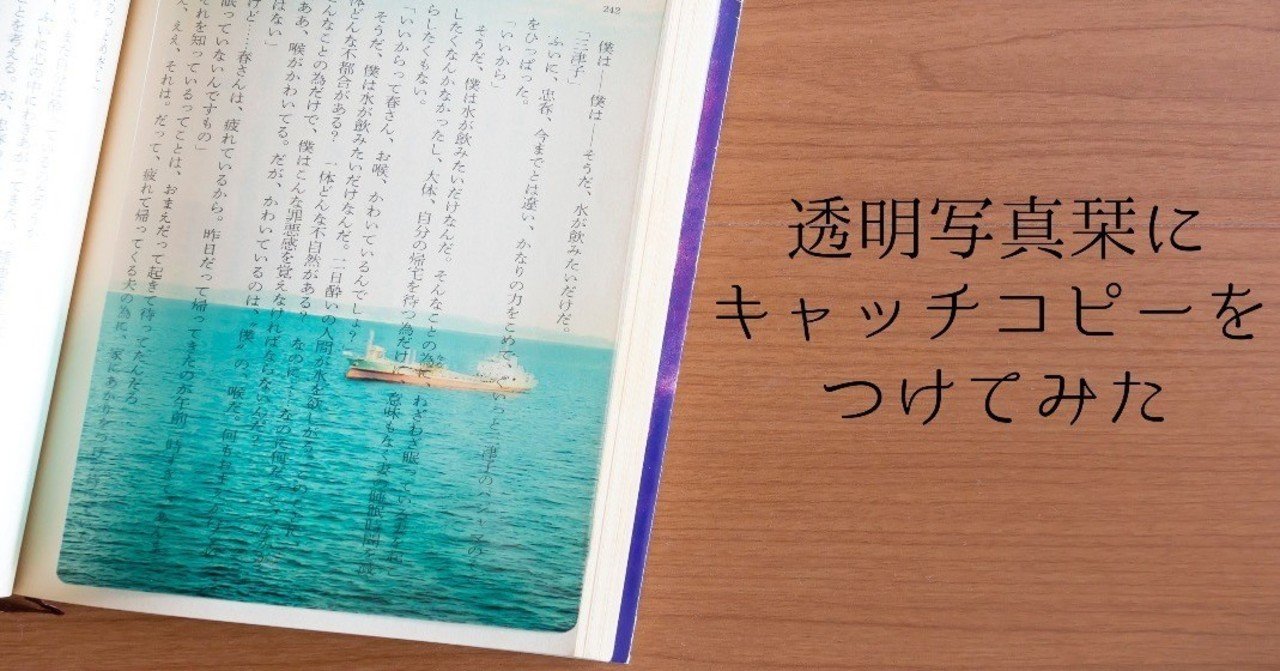 242
僕は――僕は――そうだ、水が飲みたいだけだ。
「三津子」
ふいに、忠春、今までとは違い、かなりの力をこめて、ぐいっと三津子のパジャマの
をひっぱった。
「いいから」
そうだ、僕は水が飲みたいだけなんだ。そんなことの為に、わざわざ眠っている妻を起こ
したくなんかなかったし、大体、自分の帰宅を待つ為だけに、意味もなく妻の睡眠時間を減
らしたくもない。
「いいからって春さん、お喉、かわいているんでしょ？
そうだ、僕は水が飲みたいだけなんだ。二日酔いの人間が水を欲しがる
体どんな不都合がある？ 一体どんな不自然がある？ なのに
んなことの為だけで、僕はこんな罪悪感を覚えなければならないんだ？
ああ、喉がかわいてる。だが、かわいているのは、〝僕〟の、喉だ。何も
はない」
けど……春さんは、疲れているから。昨日だって帰ってきたのが午前
眠っていないんですもの」
それを知っているってことは、おまえだって起きて待ってたんだろ
え、ええ、それは。だって、疲れて帰ってくる夫の為に、家にあかりを
透明写真栞に
キャッチコピーを
つけてみた